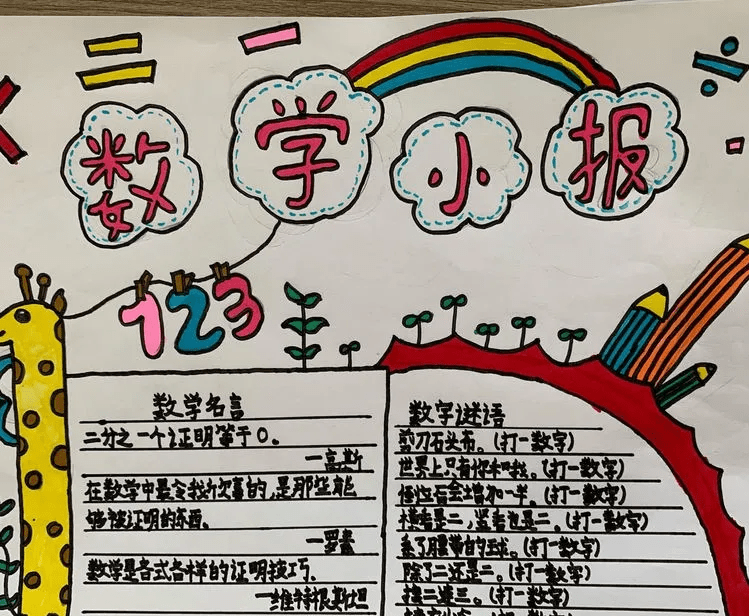 数学小报
123
数学名言
二分之一个证明等于0。
—高斯
在数学中最令我欣喜的,是那些能
够被证明的东西。
—罗素
数学是各式各样的证明技巧。
—维特根斯坦
数字谜语
剪刀石头布。(打一数字)
世界上只有你和我。(打一数字)
会增加一半。(打一数字)
横看是二,竖看也是二。(打一数字)
系了腰带的球。(打一数字)
除了二还是二。(打一数字)
接二连三。(打一数字)